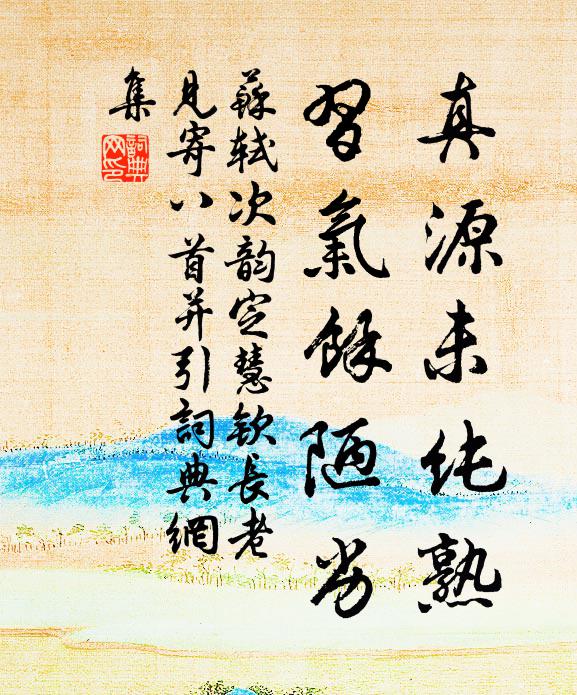 真源未純熟
習氣餘陋劣
蘇軾次韵定慧欽長老
見寄八首并引詞典網
集
詞典网印